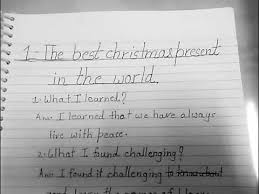 1- The best christmas present
in the world.
1- What I learned?
Ans: I learned that we have always
live with peace.
2: What I found challenging?
Ans: I found it challenging to know about